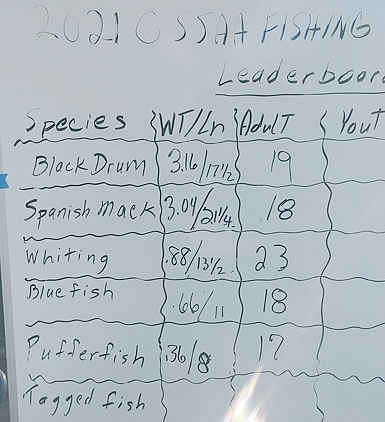 2021 GSSAA FISHING
Leaderboar
Species WT/Ln Adult Yout
Black Drum 3.16/17 1/2 19
Spanish Mack 3.04/21 1/4 18
Whiting .88/13 1/2 23
Bluefish .66/11 18
Pufferfish .36/8 17
Tagged fish